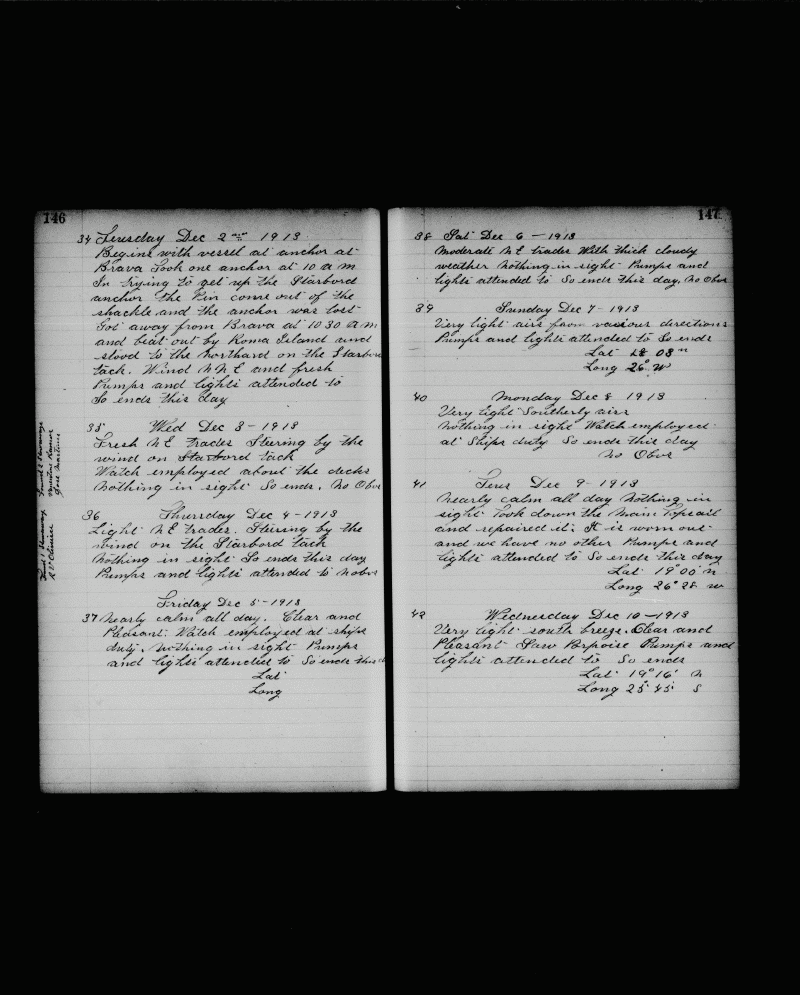 146
34 Tuesday Dec 2nd 1913
Begins with vessel at anchor at
Brava Took one anchor at 10 a m
In trying to get up the Starbord
anchor the Pin come out of the
shackle and the anchor was lost
Got away from Brava at 10 30 a m
and beat out by Roma Island and
stood to the northard on the Starbord
tack. Wind N N E and fresh
Pumps and lights attended to
So ends this day
35 Wed Dec 3 - 1913
Fresh N E trades Steering by the
wind on Starbord tack
Watch employed about the decks
Nothing in sight So ends. No Obs
36 Thursday Dec 4 - 1913
Light N E trades. Steering by the
wind on the Starbord tack
Nothing in sight So ends this day
Pumps and lights attended to No obs
Friday Dec 5 - 1913
37 Nearly calm all day. Clear and
Pleasant. Watch employed at ships
duty. Nothing in sight Pumps
and lights attended to So ends this d
Lat
Long
147
38 Sat Dec 6 - 1913
Moderate N E trades With thick cloudy
weather Nothing in sight Pumps and
lights attended to So ends this day. No Obs
39 Sunday Dec 7 - 1913
Very light airs from various directions
Pumps and lights attended to So ends
Lat 18 08 n
Long 26° W
40 Monday Dec 8 1913
Very light Southerly airs
Nothing in sight Watch employed
at Ships duty So ends this day
No Obs
41 Tues Dec 9 - 1913
Nearly calm all day Nothing in
sight Took down the Main Topsail
and repaired it. It is worn out
and we have no other Pumps and
lights attended to So ends this day
Lat 19° 00' n
Long 26° 28 w
42 Wednesday Dec 10 - 1913
Very light south breeze. Clear and
Pleasant Saw Porpoise Pumps and
lights attended to So ends
Lat 19° 16' N
Long 25° 45' S